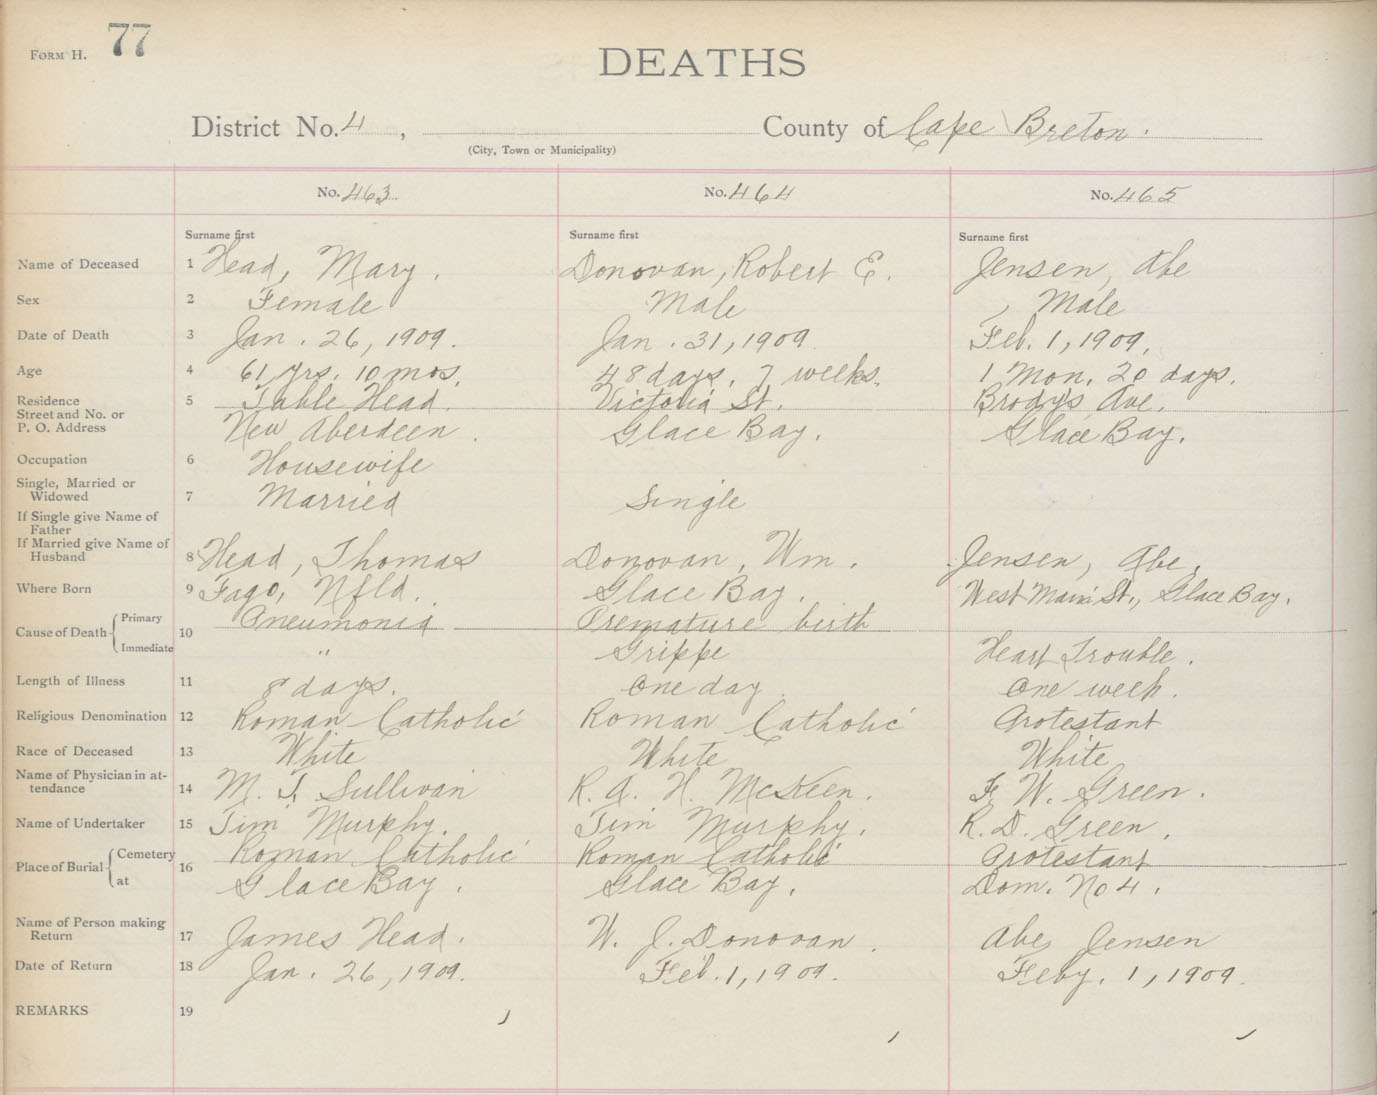 FORM H. 77
DEATHS
District No. 4, County of Cape Breton.
(City, Town or Municipality)
No. 463 No. 464 No. 465
Surname first Surname first Surname first
Name of Deceased 1 Head, Mary. Donovan, Robert E. Jensen, Abe
Sex 2 Female Male Male
Date of Death 3 Jan. 26, 1909. Jan. 31, 1909 Feb. 1, 1909.
Age 4 61 yrs. 10 mos. 48 days. 7 weeks. 1 Mon. 20 days.
Residence 5 Table Head. Victoria St. Brodys Ave.
Street and No. or
P. O. Address New Aberdeen. Glace Bay. Glace Bay.
Occupation 6 Housewife
Single, Married or
Widowed 7 Married Single
If Single give Name of
Father
If Married give Name of
Husband 8 Head, Thomas Donovan, Wm. Jensen, Abe,
Where Born 9 Fago, Nfld. Glace Bay. West Main St., Glace Bay.
Cause of Death Primary Pneumonia Premature birth
10
Immediate " Grippe Heart Trouble.
Length of Illness 11 8 days. One day. One week.
Religious Denomination 12 Roman Catholic Roman Catholic Protestant
Race of Deceased 13 White White White
Name of Physician in at-
tendance 14 M. T. Sullivan R. A. H. McKeen. F. W. Green.
Name of Undertaker 15 Jim Murphy. Jim Murphy. R. D. Green.
Place of Burial Cemetery Roman Catholic Roman Catholic Protestant
16
at Glace Bay. Glace Bay. Dom. No 4.
Name of Person making
Return 17 James Head. W. J. Donovan. Abe Jensen
Date of Return 18 Jan. 26, 1909. Feb. 1, 1909. Feby. 1, 1909.
REMARKS 19